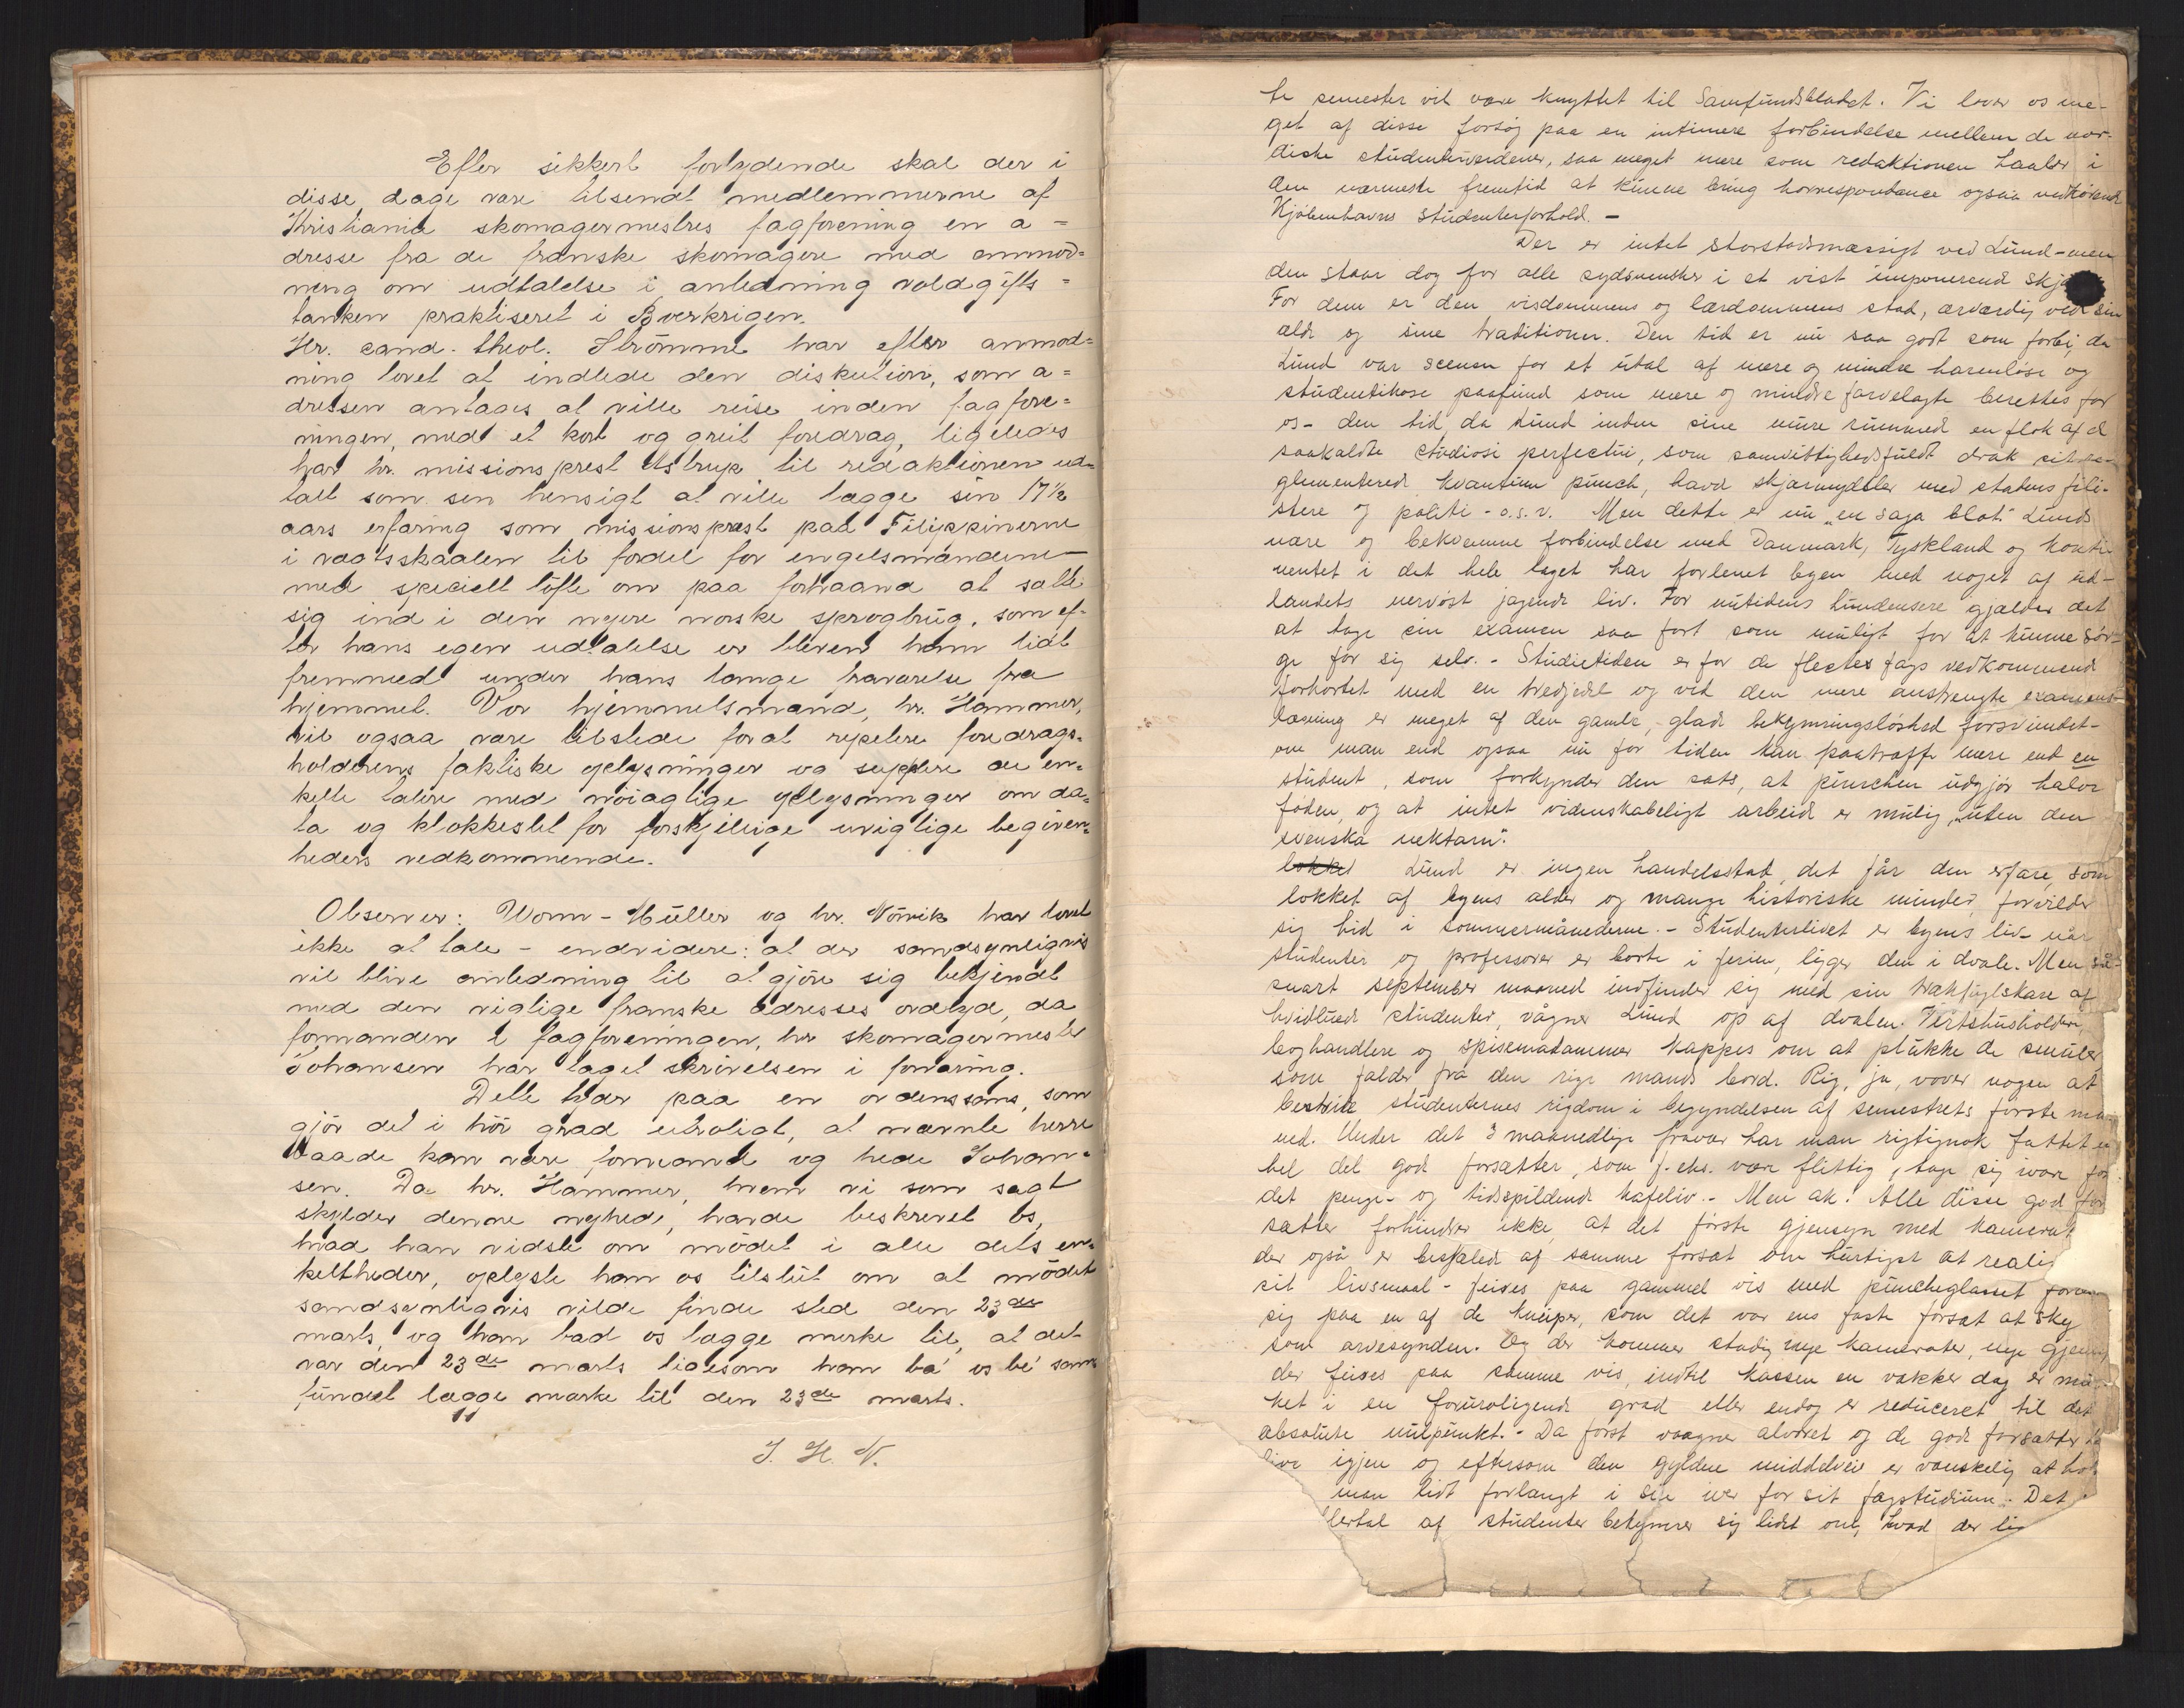 Efter sikkert forlydende skal der i
disse dage være tilsendt medlemmerne af
Kristiania skomagermestres fagforening en a=
dresse fra de franske skomagere med anmod=
ning om udtalelse i anledning voldgifts=
tanken praktiseret i Boerkrigen.
Hr. cand. theol. Strömme har efter anmod=
ning lovet at indlede den diskution, som a=
dressen antages at ville reise inden fagfore=
ningen, med et kort og greit foredrag, ligeledes
har hr. missionsprest Astrup til redaktionen ud=
talt som sen hensigt at ville lægge sin 17½
aars erfaring som missionsprest paa Filippinerne
i vagtsskaalen til fordel for engelsmændene -
med specielt löfte om paa forhaand at sætte
sig ind i den nyere norske sprogbrug, som ef-
ter hans egen udtalelse er bleven ham lidt
fremmed under hans lange fraværelse fra
hjemmet. Vor hjemmelsmand, hr. Hammer,
vil ogsaa være tilstede forat repetere foredrags=
holderens faktiske oplysninger og supplere de en=
kelte talere med nöiagtige oplysninger om da=
ta og klokkeslet for forskjellige uvigtige begiven=
heders vedkommende.
Observer: Worm-Müller og hr. Nörvik har lovet
ikke at tale - endvidere: at der sandsynligvis
vil blive anledning til at gjöre sig bekjendt
med den vigtige franske adresses ordlyd, da
formanden i fagforeningen, hr skomagermester
Johansen har taget skrivelsen i forvaring.
Dette tyder paa en ordenssans, som
gjör det i höi grad utroligt, at nævnte herre
baade kan være formand og hede Johan=
sen. Da hr. Hammer, hvem vi som sagt
skylder denne nyhed, havde beskrevet os,
hvad han vidste om mödet i alle dets en=
keltheder, oplyste han os tilslut om at mödet
sandsynligvis vilde finde sted den 23de
marts, og han bad os lægge merke til, at det
var den 23de marts ligesom han ba' os be' sam
fundet lægge mærke til den 23de marts.
J. H. N.
te semester vil være knyttet til Samfundsbladet. Vi lover os me-
get af disse forsög paa en intimere forbindelse mellem de nor-
diske studenterverdener, saa meget mere som redaktionen haaber i
den nærmeste fremtid at kunne bring korrespondance ogsaa vedkörende
Kjöbenhavns studenterforhold. -
Der er intet storstadsmæssigt ved Lund - men
den staar dog for alle sydsvensker i et vist imponerende skjæ
For dem er den visdommens og lærdommens stad, ærværdig ved sin
ælde og sine traditioner. Den tid er nu saa godt som forbi, da
Lund var scenen for et utal af mere og mindre harmlöse og
studentikose paafund som mere og mindre farvelagte berettes for
os - den tid, da Lund inden sine mure rummed en flok af d
saakaldte studiosi perfectui, som samvittighedsfuldt drak sit re-
glementerede kvantum punch, havde skjærmydsler med stadens fili-
stere og politi - o.s.v. Men dette er nu „en saga blot". Lunds
nære og bekvemme forbindelse med Danmark, Tyskland og konti
nentet i det hele taget har forlenet byen med noget af ud-
landets nervöst jagende liv. For nutidens lundensere gjælder det
at tage sin examen saa fort som muligt for at kunne sör-
ge for sig selv. - Studietiden er for de flestes fags vedkommende
forkortet med en tredjedel og ved den mere anstrengte examens-
læsning er meget af den gamle, glade bekymringslöshed forsvundet -
om man end ogsaa nu for tiden kan paatræffe mere end en
student, som forkynder den sats, at punchen udgjör halve
föden, og at intet videnskabeligt arbeid er mulig „uten den
svenska nektarn".
lokket Lund er ingen handelsstad, det får den erfare, som
lokket af byens alder og mange historiske minder, forvilder
sig hid i sommermånederne. - Studenterlivet er byens liv - når
studenter og professorer er borte i ferien, ligger den i dvale. Men så-
snart september maaned indfinder sig med sin trækfuglskare af
hvidluede studenter, vågner Lund op af dvalen. Vertshusholdere,
boghandlere og spisemadammer kappes om at plukke de smuler
som falder fra den rige mands bord. Rig, ja, vover nogen at
bestride studenternes rigdom i begyndelsen af semestrets förste må
ned. Under det 3 maanedlige fravær har man rigtignok fattet en
hel del gode forsætter, som f. eks. være flittig, tage sig ivare for
det penge- og tidspildende kafeliv. - Men ak! Alle disse gode for
sætter forhindrer ikke, at det förste gjensyn med kamerat
der også er besjæled af samme forsæt om hurtigst at realis
sit livsmaal - feires paa gammel vis med puncheglasset foran
sig paa en af de kneiper, som det var ens faste forsæt at sky
som arvesynden. Og der kommer stadig nye kamerater, nye gjensyn,
der feires paa samme vis, indtil kassen en vakker dag er min
ket i en foruroligende grad eller endog er reduceret til det
absolute nulpunkt. - Da först vaagner alvoret og de gode forsætter
live igjen og eftersom den gyldne middelvei er vanskelig at hol
man lidt forlangt i sin iver for sit fagstudium. Det
lertal af studenter bekymrer sig lidt om, hvad der lig